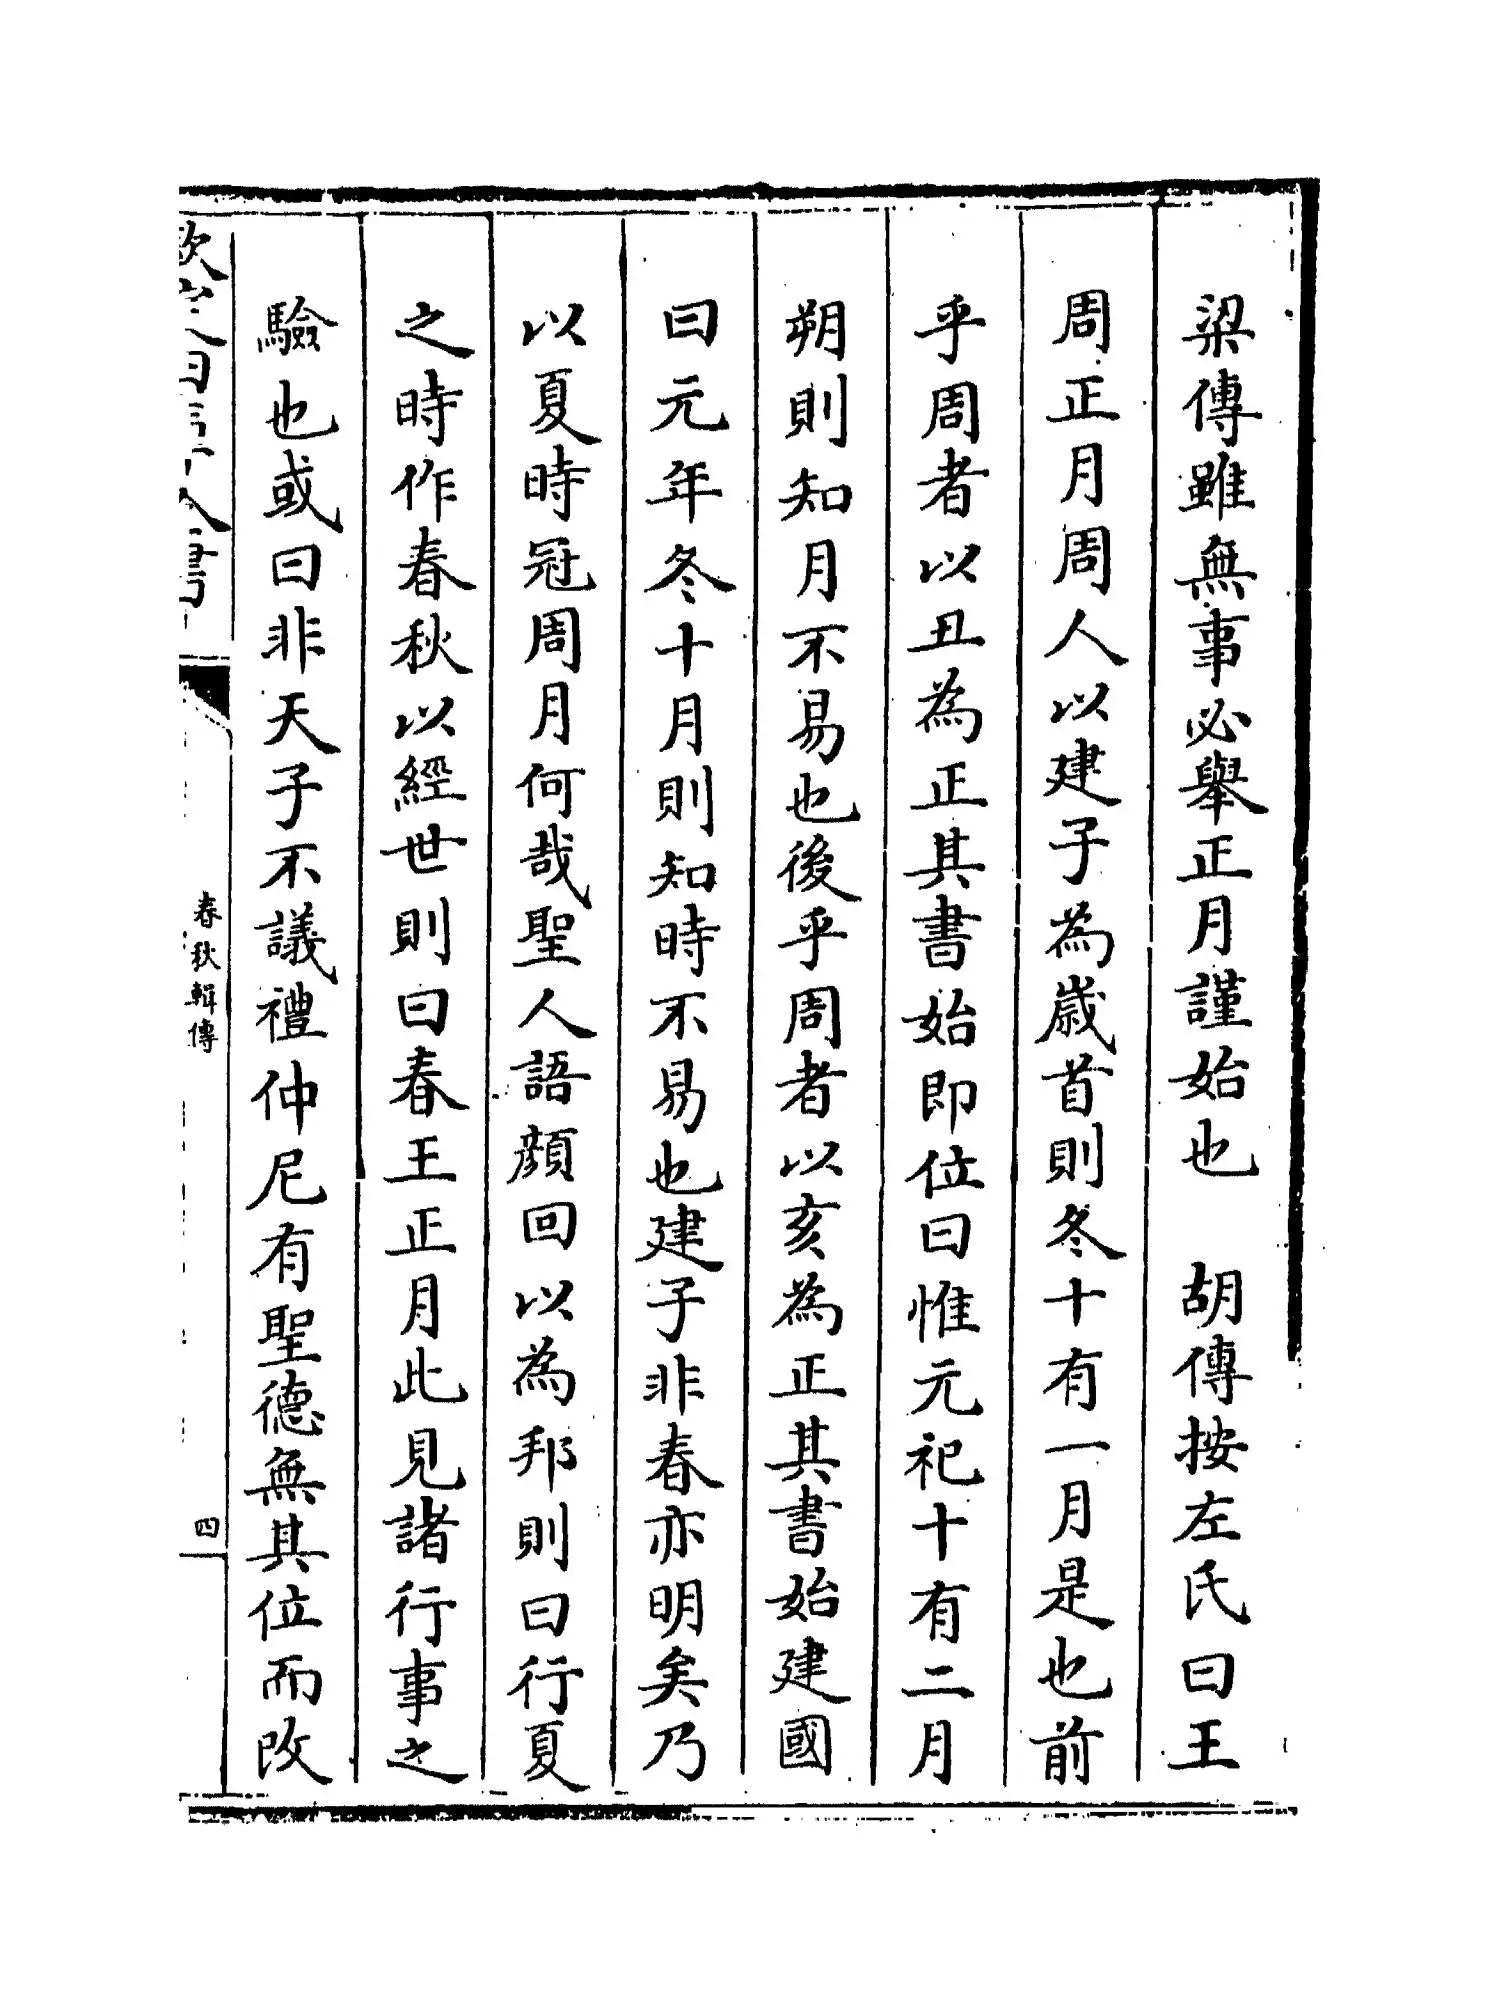 梁傳雖無事必舉正月謹始也　胡傳按左氏曰王
周正月周人以建子為歲首則冬十有一月是也前
乎周者以丑為正其書始即位曰惟元祀十有二月
朔則知月不易也後乎周者以亥為正其書始建國
曰元年冬十月則知時不易也建子非春亦明矣乃
以夏時冠周月何哉聖人語顔回以為邦則曰行夏
之時作春秋以經世則曰春王正月此見諸行事之
驗也或曰非天子不議禮仲尼有聖德無其位而改
欽定四庫全書
春秋輯傳
四